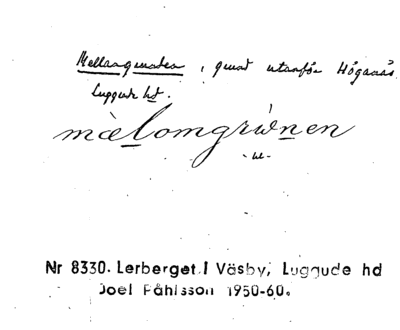 Mellangrunden, grund utanför Höganäs
Luggude hd.
mœ̀lomgriẁnen
Nr 8330. Lerberget i Väsby, Luggude hd
Joel Påhlsson 1950-60.